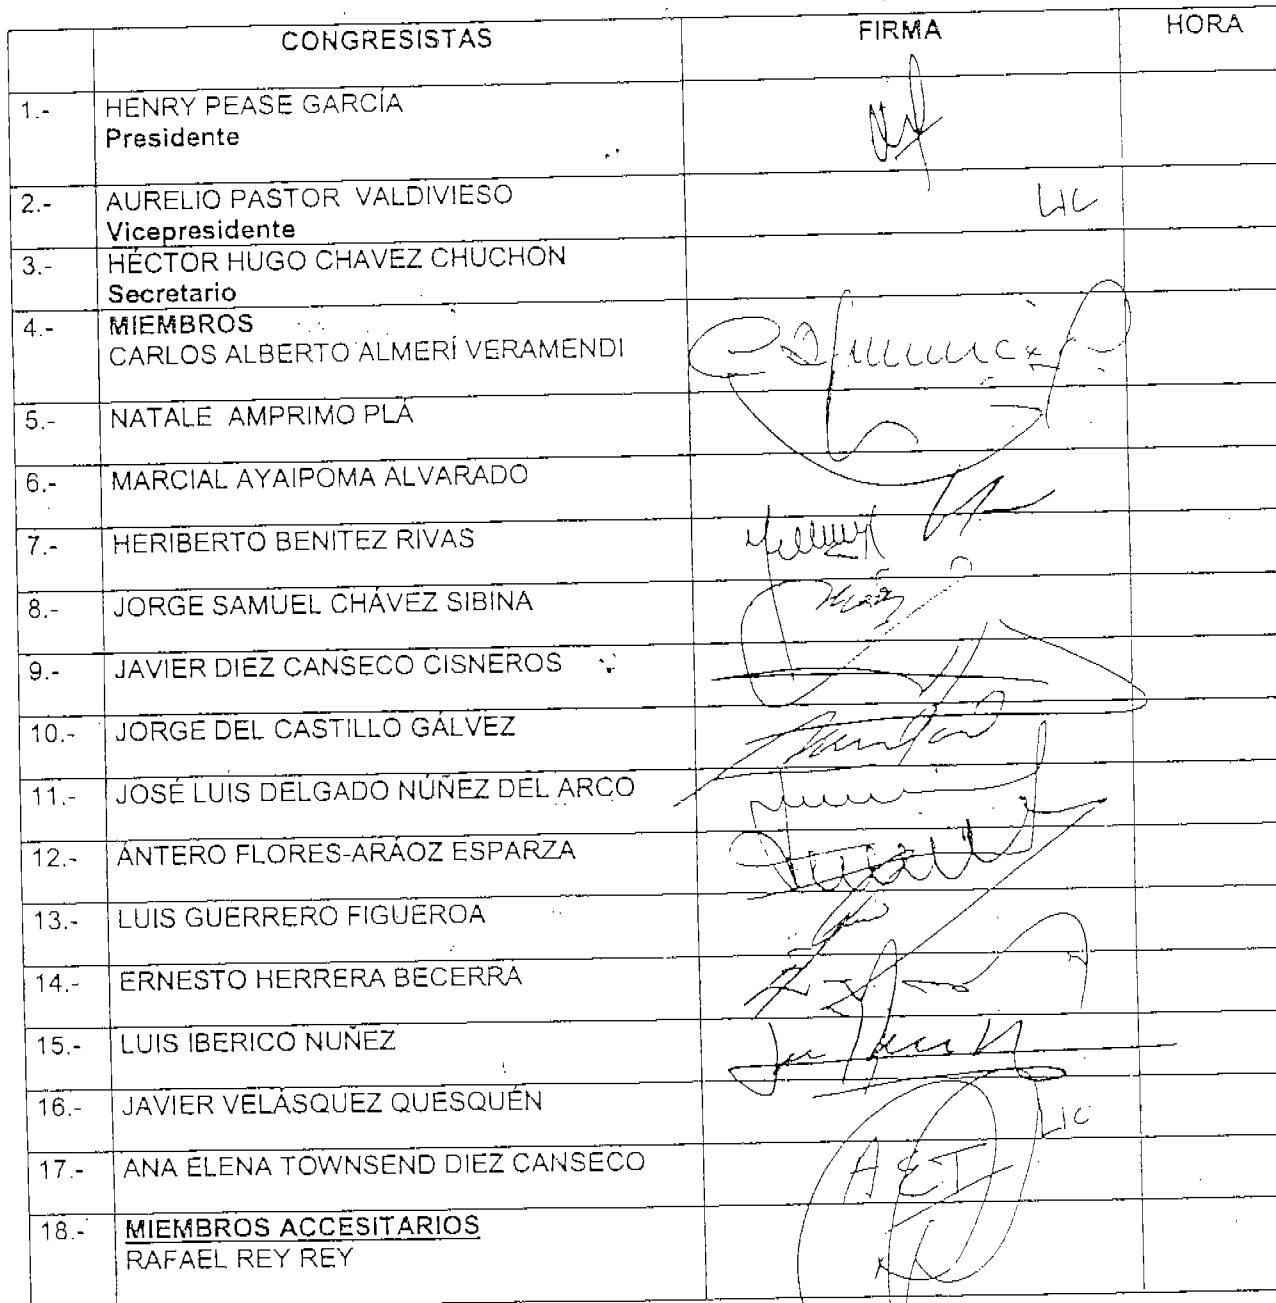 CONGRESISTAS FIRMA HORA
1.- HENRY PEASE GARCÍA
Presidente
2.- AURELIO PASTOR VALDIVIESO LIC
Vicepresidente
3.- HÉCTOR HUGO CHAVEZ CHUCHON
Secretario
4.- MIEMBROS
CARLOS ALBERTO ALMERÍ VERAMENDI
5.- NATALE AMPRIMO PLÁ
6.- MARCIAL AYAIPOMA ALVARADO
7.- HERIBERTO BENITEZ RIVAS
8.- JORGE SAMUEL CHÁVEZ SIBINA
9.- JAVIER DIEZ CANSECO CISNEROS
10.- JORGE DEL CASTILLO GÁLVEZ
11.- JOSÉ LUIS DELGADO NÚÑEZ DEL ARCO
12.- ÁNTERO FLORES-ARÁOZ ESPARZA
13.- LUIS GUERRERO FIGUEROA
14.- ERNESTO HERRERA BECERRA
15.- LUIS IBERICO NUÑEZ
16.- JAVIER VELÁSQUEZ QUESQUÉN LIC
17.- ANA ELENA TOWNSEND DIEZ CANSECO AET
18.- MIEMBROS ACCESITARIOS
RAFAEL REY REY